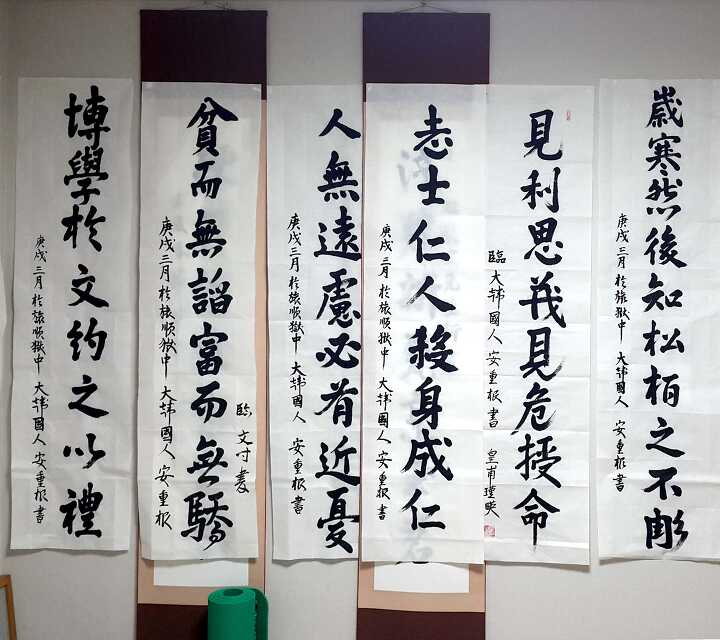 歲寒然後知松栢之不彫
庚戌三月 於旅順獄中 大韓國人 安重根書
見利思義見危授命
臨 大韓國人安重根書 皇甫
志士仁人殺身成仁
庚戌三月 於旅順獄中 大韓國人 安重根書
人無遠慮必有近憂
庚戌三月 於旅順獄中 大韓國人 安重根書
貧而無諂富而無驕
庚戌三月 於旅順獄中 大韓國人 安重根
臨 文寸
博學於文約之以禮
庚戌三月 於旅順獄中 大韓國人 安重根書